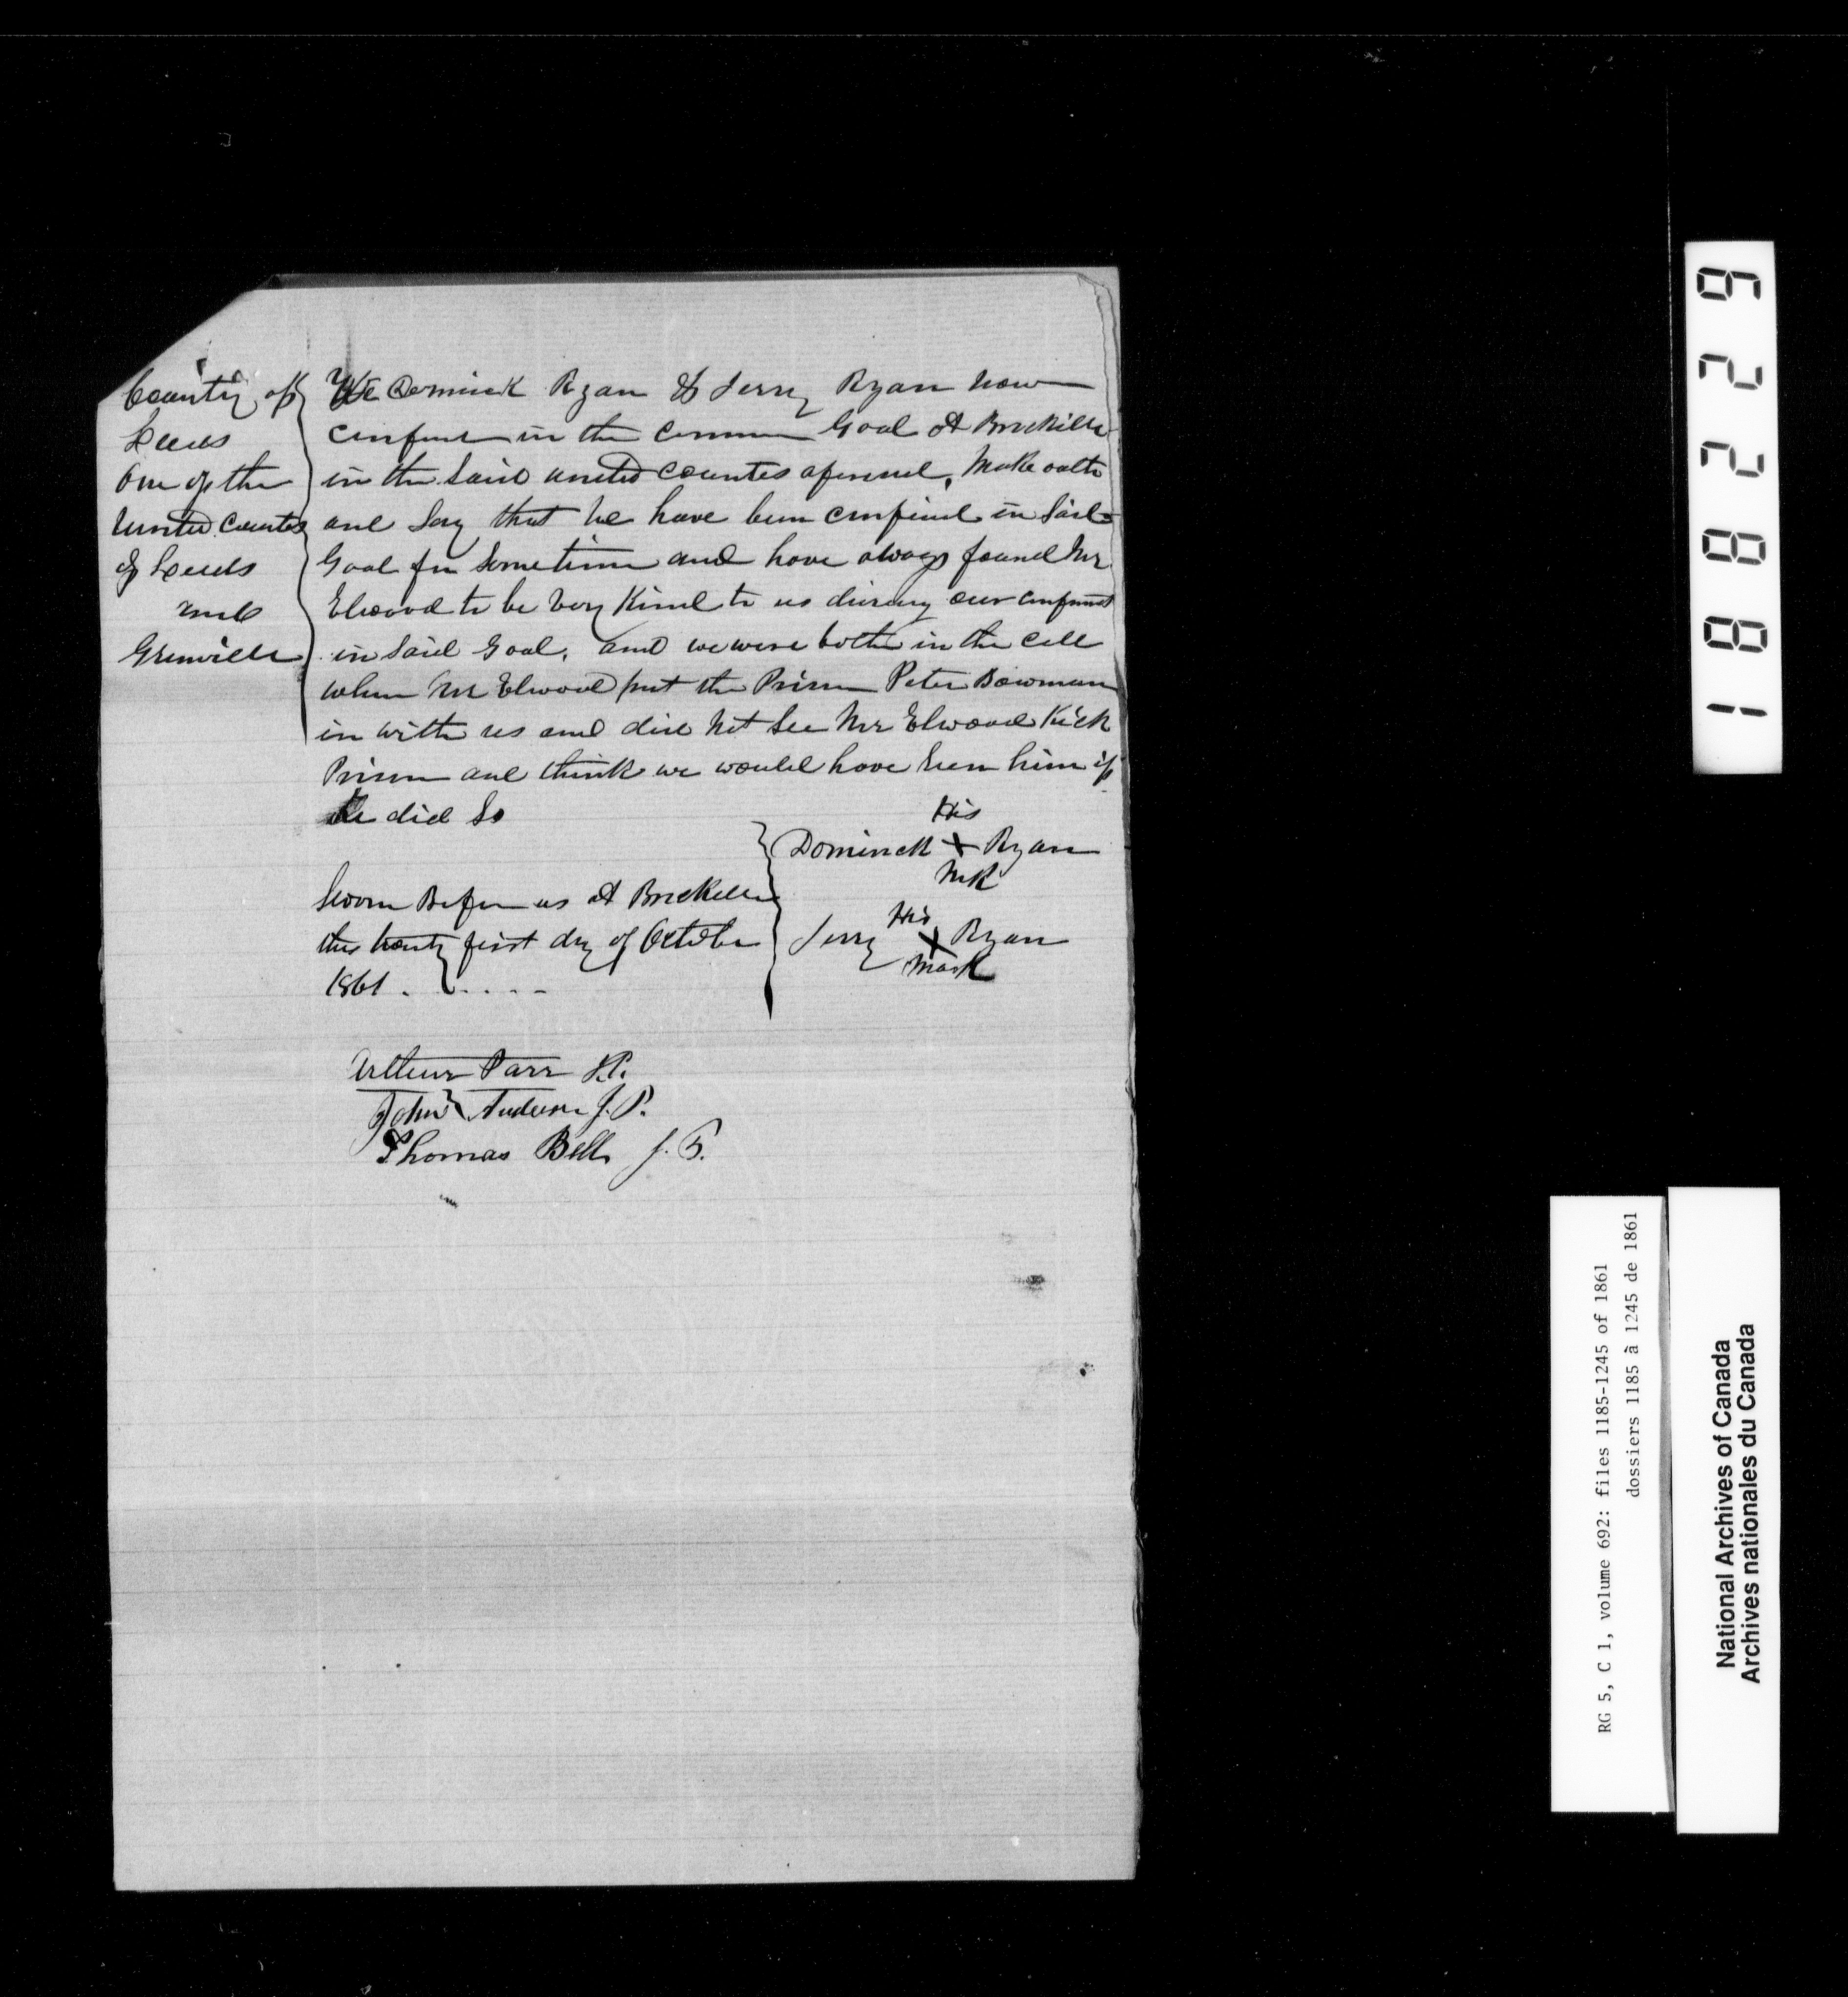 County of
Leeds
One of the
United Counties
of Leeds
and
Grenville
We Dominick Ryan & Jerry Ryan now
confined in the Common Goal at Brockville
in the said united Counties aforesaid, Make oath
and Say that we have been confined in Said
Goal for Sometime and have always found Mr
Elwood to be very Kind to us during our confinmt
in Said Goal. and we were both in the Cell
when Mr Elwood put the Prisoner Peter Bowman
in with us and did not See Mr Elwood Kick
Prisoner and think we would have Seen him if
he did So
Sworn Before us at Brockville
this twenty first day of October
1861 . . . . . .
His
Dominick X Ryan
Mk
His
Jerry X Ryan
Mark
Arthur Parr J.P.
John Anderson J.P.
Thomas Bell J.P.
182829
RG 5, C 1, volume 692: files 1185-1245 of 1861
dossiers 1185 à 1245 de 1861
National Archives of Canada
Archives nationales du Canada